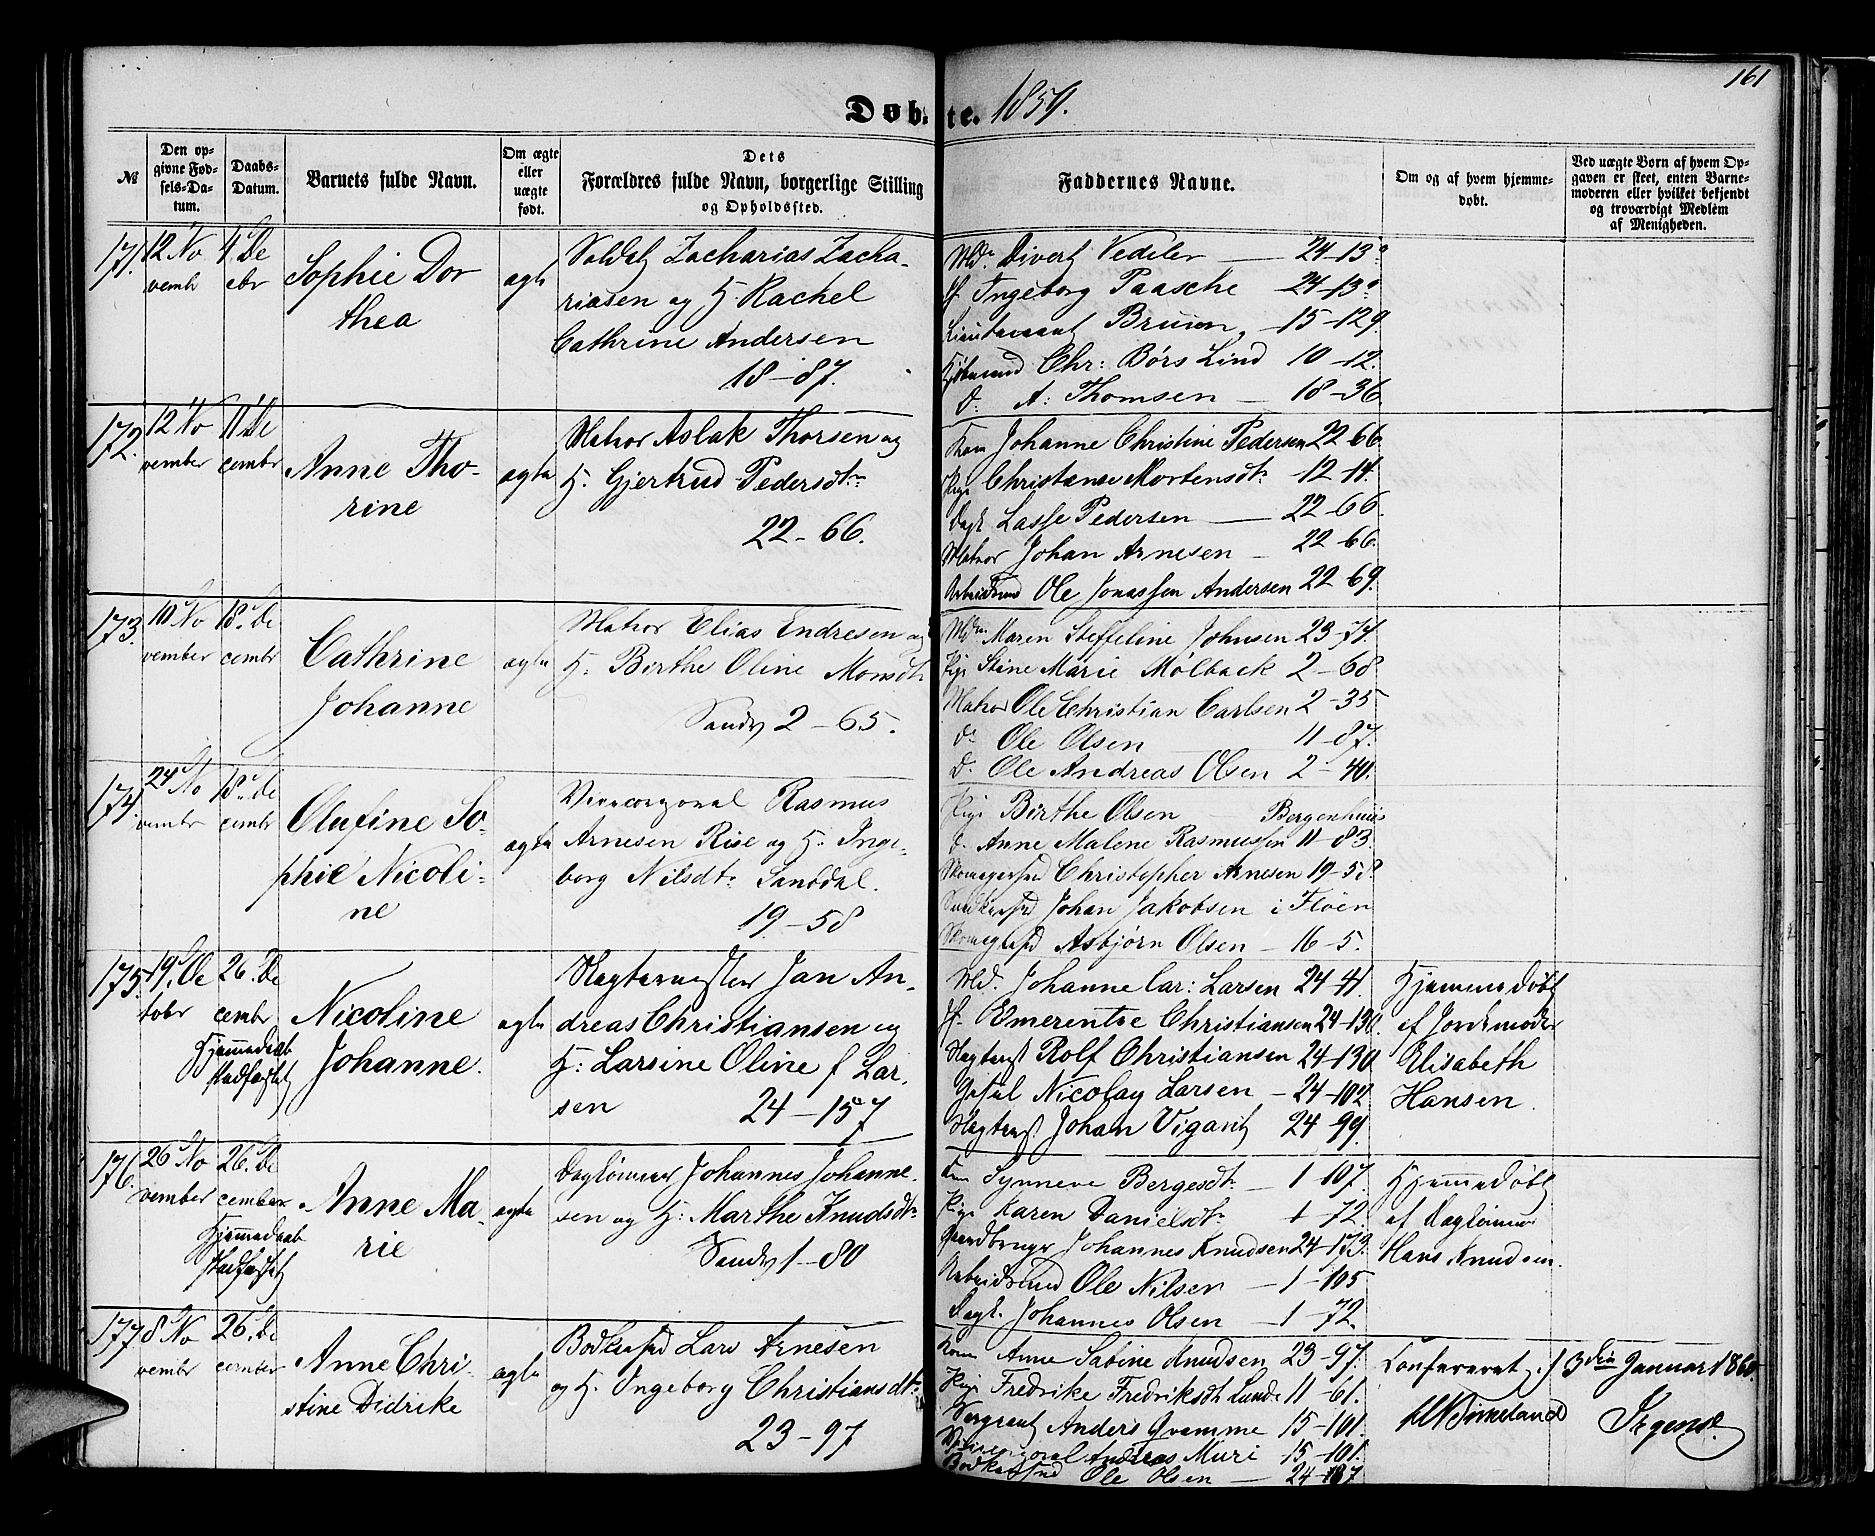 161
Døbte. 1859.
№
Den opgivne Fødsels-Datum.
Daabs-Datum.
Barnets fulde Navn.
Om ægte eller uægte født.
Dets Forældres fulde Navn, borgerlige Stilling og Opholdssted.
Faddernes Navne.
Om og af hvem hjemmedøbt.
Ved uægte Børn af hvem Opgaven er skeet, enten Barnemoderen eller hvilket bekjendt og troværdigt Medlem af Menigheden.
171. 12 No vembr
4 De cbr
Sophie Dor
thea
ægte
Soldat Zacharias Zacha-
riasen og H. Rachel
Cathrine Andersen
18-87.
Md. Divert Vedeler — 24-13
Jf. Ingeborg Paasche 24-13
Lieutenant Bruun, 15-129
Kjøbmand Chr: Børs Lind 10-12.
D: A: Thomsen — 18-36
172. 12 No vember
11 De cembr
Anne Tho-
rine
ægte
Matros Aslak Thorsen og
H. Gjertrud Pedersdtr
22-66.
Kone Johanne Christine Pedersen 22-66.
Pige Christense Mortensdtr 12-14.
Dagl. Lasse Pedersen — 22-66.
Matros Johan Arnesen — 22-66.
Arbeidsmd Ole Jonassen Andersen 22-69.
173. 10 No vember
18 De cembr
Cathrine
Johanne
ægte
Matros Elias Endresen og
H. Birthe Oline Monsdtr
Sandv 2-65.
Md. Maren Steffeline Johnsen 23-74.
Pige Stine Marie Mølback 2-68
Matros Ole Christian Carlsen 2-35
D. Ole Olsen 11-87.
D. Ole Andreas Olsen 2-40.
174. 24 No vembr
18 De cembr
Olufine So-
phie Nicoli-
ne
ægte
Vicecorporal Rasmus
Arnesen Rise og H. Inge-
borg Nilsdtr Sanddal.
19-58
Pige Birthe Olsen — Bergenhuus
d. Anne Malene Rasmussen 11-83
Skomagersvd Christopher Arnesen 19-58
Johan Jakobsen i Fløen
Asbjørn Olsen — 16-5.
175. 19 Oc tobr
26. De cembr
Hjemmedaab
stadfæstet
Nicoline
Johanne.
ægte
Hagtermester Jan An-
dreas Christiansen og
H: Larsine Oline f Lar-
sen 24-157
Md. Johanne Car: Larsen 24-41.
Jf. Emerentse Christiansen 24-130.
Rolf Christiansen 24-130
Nicolay Larsen — 24-102
Johan Vigant 24-99
Hjemmedøbt
af Jordemoder
Elisabeth
Hansen.
176. 26 No vember
26. De cember
Hjemmedaab
stadfæstet
Anne Ma-
rie
ægte
Dagleier Johannes Johanne-
sen og H: Marthe Knudsdtr
Sandv 1-80
Kone Synneve Bergesdtr — 1-107.
Pige Karen Danielsdtr 1-72.
Gaardbruger Johannes Knudsen 24-173.
Arbeidsmand Ole Nilsen — 1-105
Dagl. Johannes Olsen — 1-72.
Hjemmedøbt
af Dagleier
Hans Knudsen.
177. 8 No vembr
26. De cember
Anne Chri-
stine Didrike
ægte
Bødkersvd Lars Arnesen
og H. Ingeborg Christiansdtr
23-97
Kone Anne Sabine Knudsen 23-97.
Pige Fredrike Fredriksdtr Lunde 11-61.
Sergeant Anders Qvamme 15-101.
Vicecorporal Andreas Muri 15-101.
Bødkersvd Ole Olsen — 24-187
Confereret d. 3die Januar 1860.